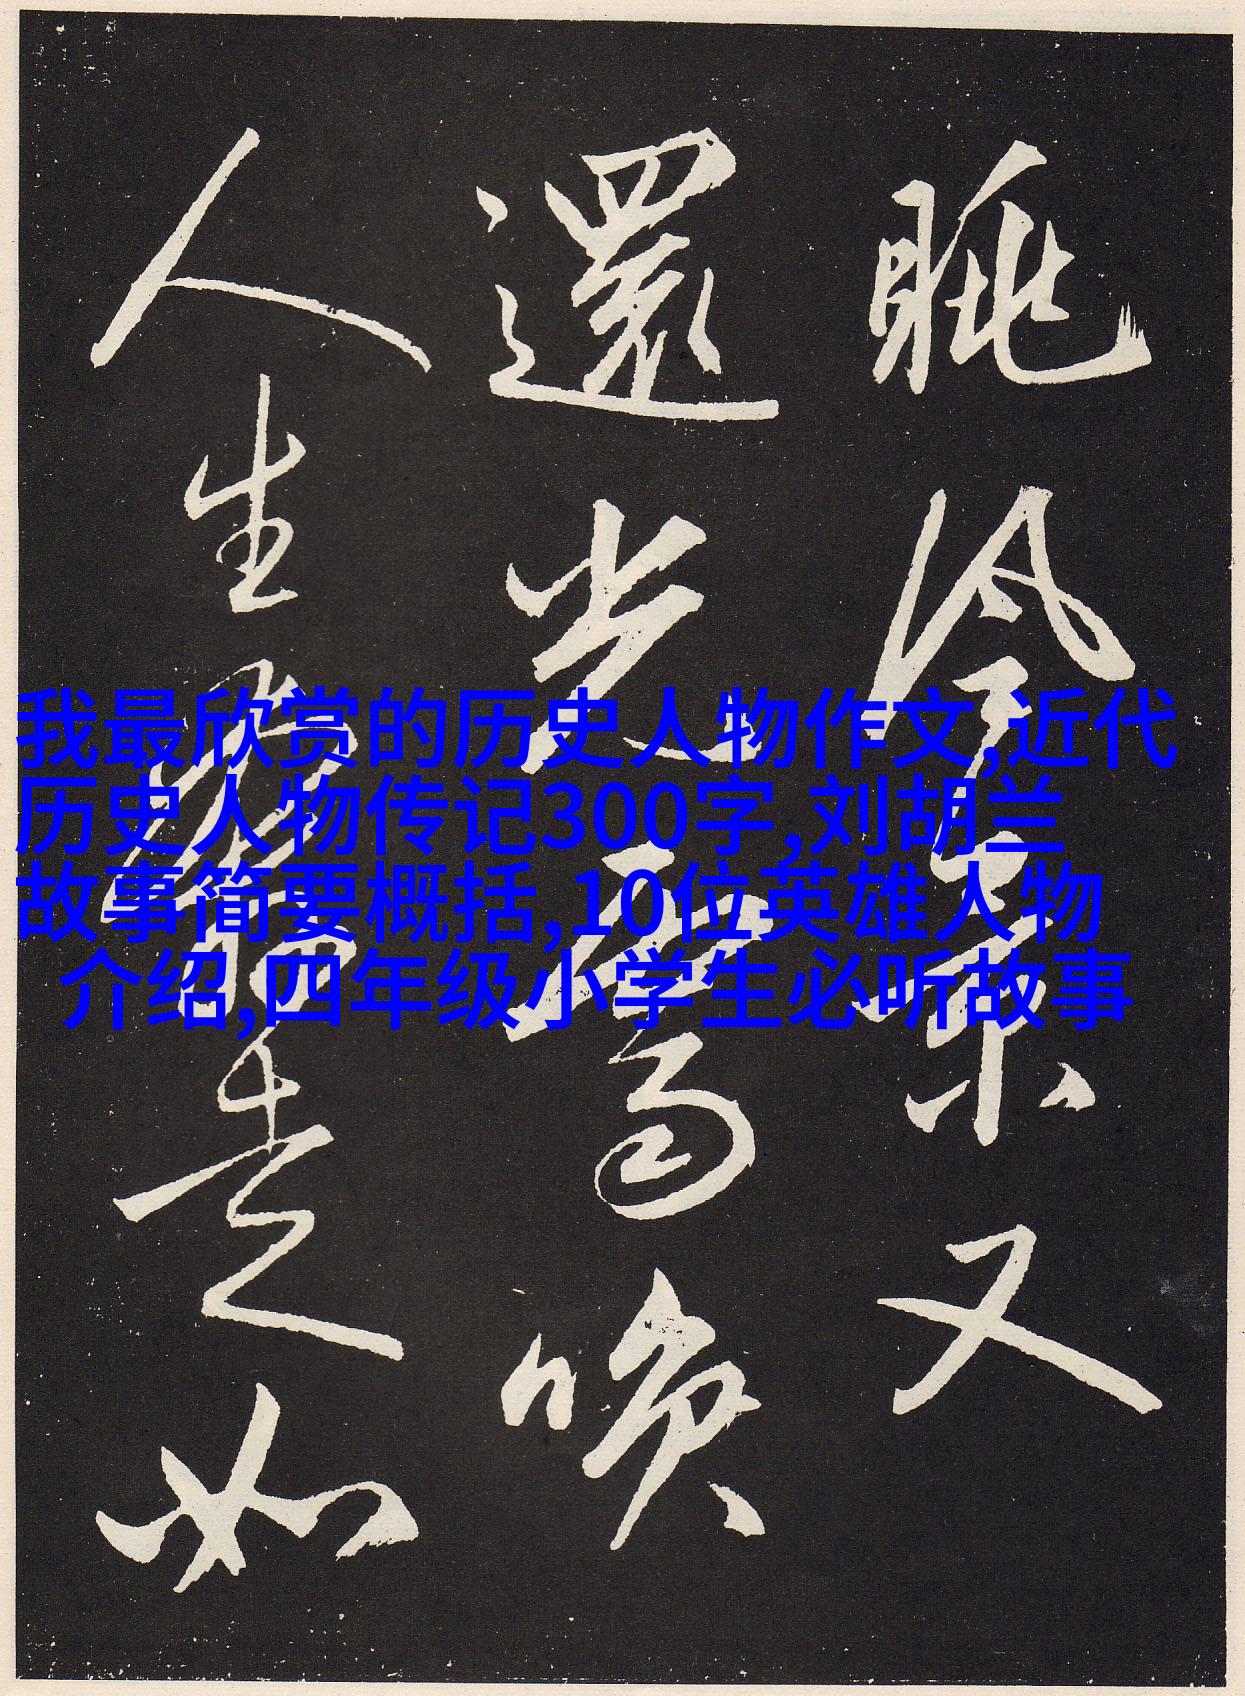 眺冷泉又
還坐需喚
人生無著走如
我最欣赏的历史人物作文,近代
历史人物传记300字,刘胡兰
故事简要概括,10位英雄人物
介绍,四年级小学生必听故事